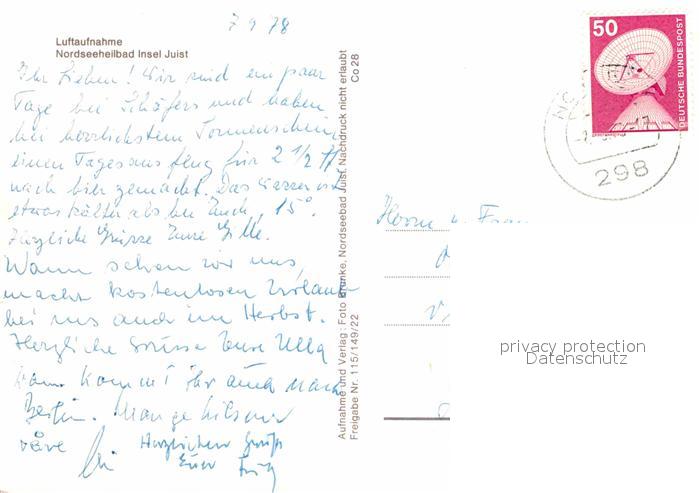 7 9 78
Luftaufnahme
Nordseeheilbad Insel Juist
Ihr Lieben! Wir sind ein paar
Tage bei Schäfers und haben
bei herrlichstem Sonnenschein
einen Tagesausflug für 2 1/2
nach hier gemacht. Das Wasser ist
etwas kälter als bei Euch, 15°.
Herzliche Grüsse Eure Gille.
Wann sehen wir uns,
macht kostenlosen Urlaub
bei uns auch im Herbst.
Herzliche Grüsse Eure Ulla
Wann kommt ihr auch nach
Berlin.
Herzlichen Gruß
Euer Fritz
Aufnahme und Verlag: Foto Brunke, Nordseebad Juist, Nachdruck nicht erlaubt
Freigabe Nr. 115/149/22
Co 28
50
DEUTSCHE BUNDESPOST
298
Herrn u. Frau
privacy protection
Datenschutz